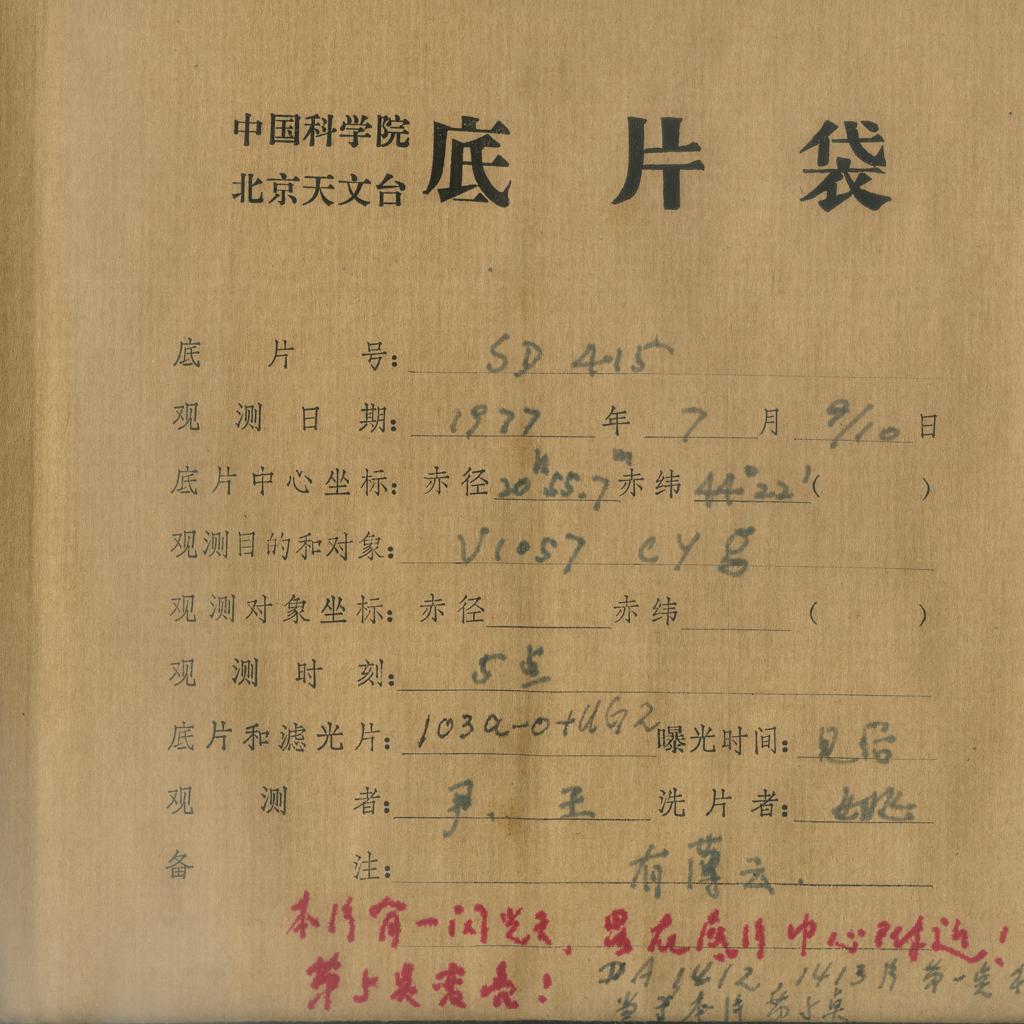 中国科学院
北京天文台
底片袋
底片号: SD 415
观测日期: 1977 年 7 月 9/10 日
底片中心坐标: 赤径 20h55.7m 赤纬 44°22′ ( )
观测目的和对象: V1057 Cyg
观测对象坐标: 赤径 赤纬 ( )
观测时刻: 5点
底片和滤光片: 103a-0+UG2 曝光时间: 见后
观测者: 尹、王 洗片者:
备注: 有薄云.
本片有一闪光, 是在底片中心附近!
第5点变亮!
DA 1412, 1413片 第一点
本片第5点